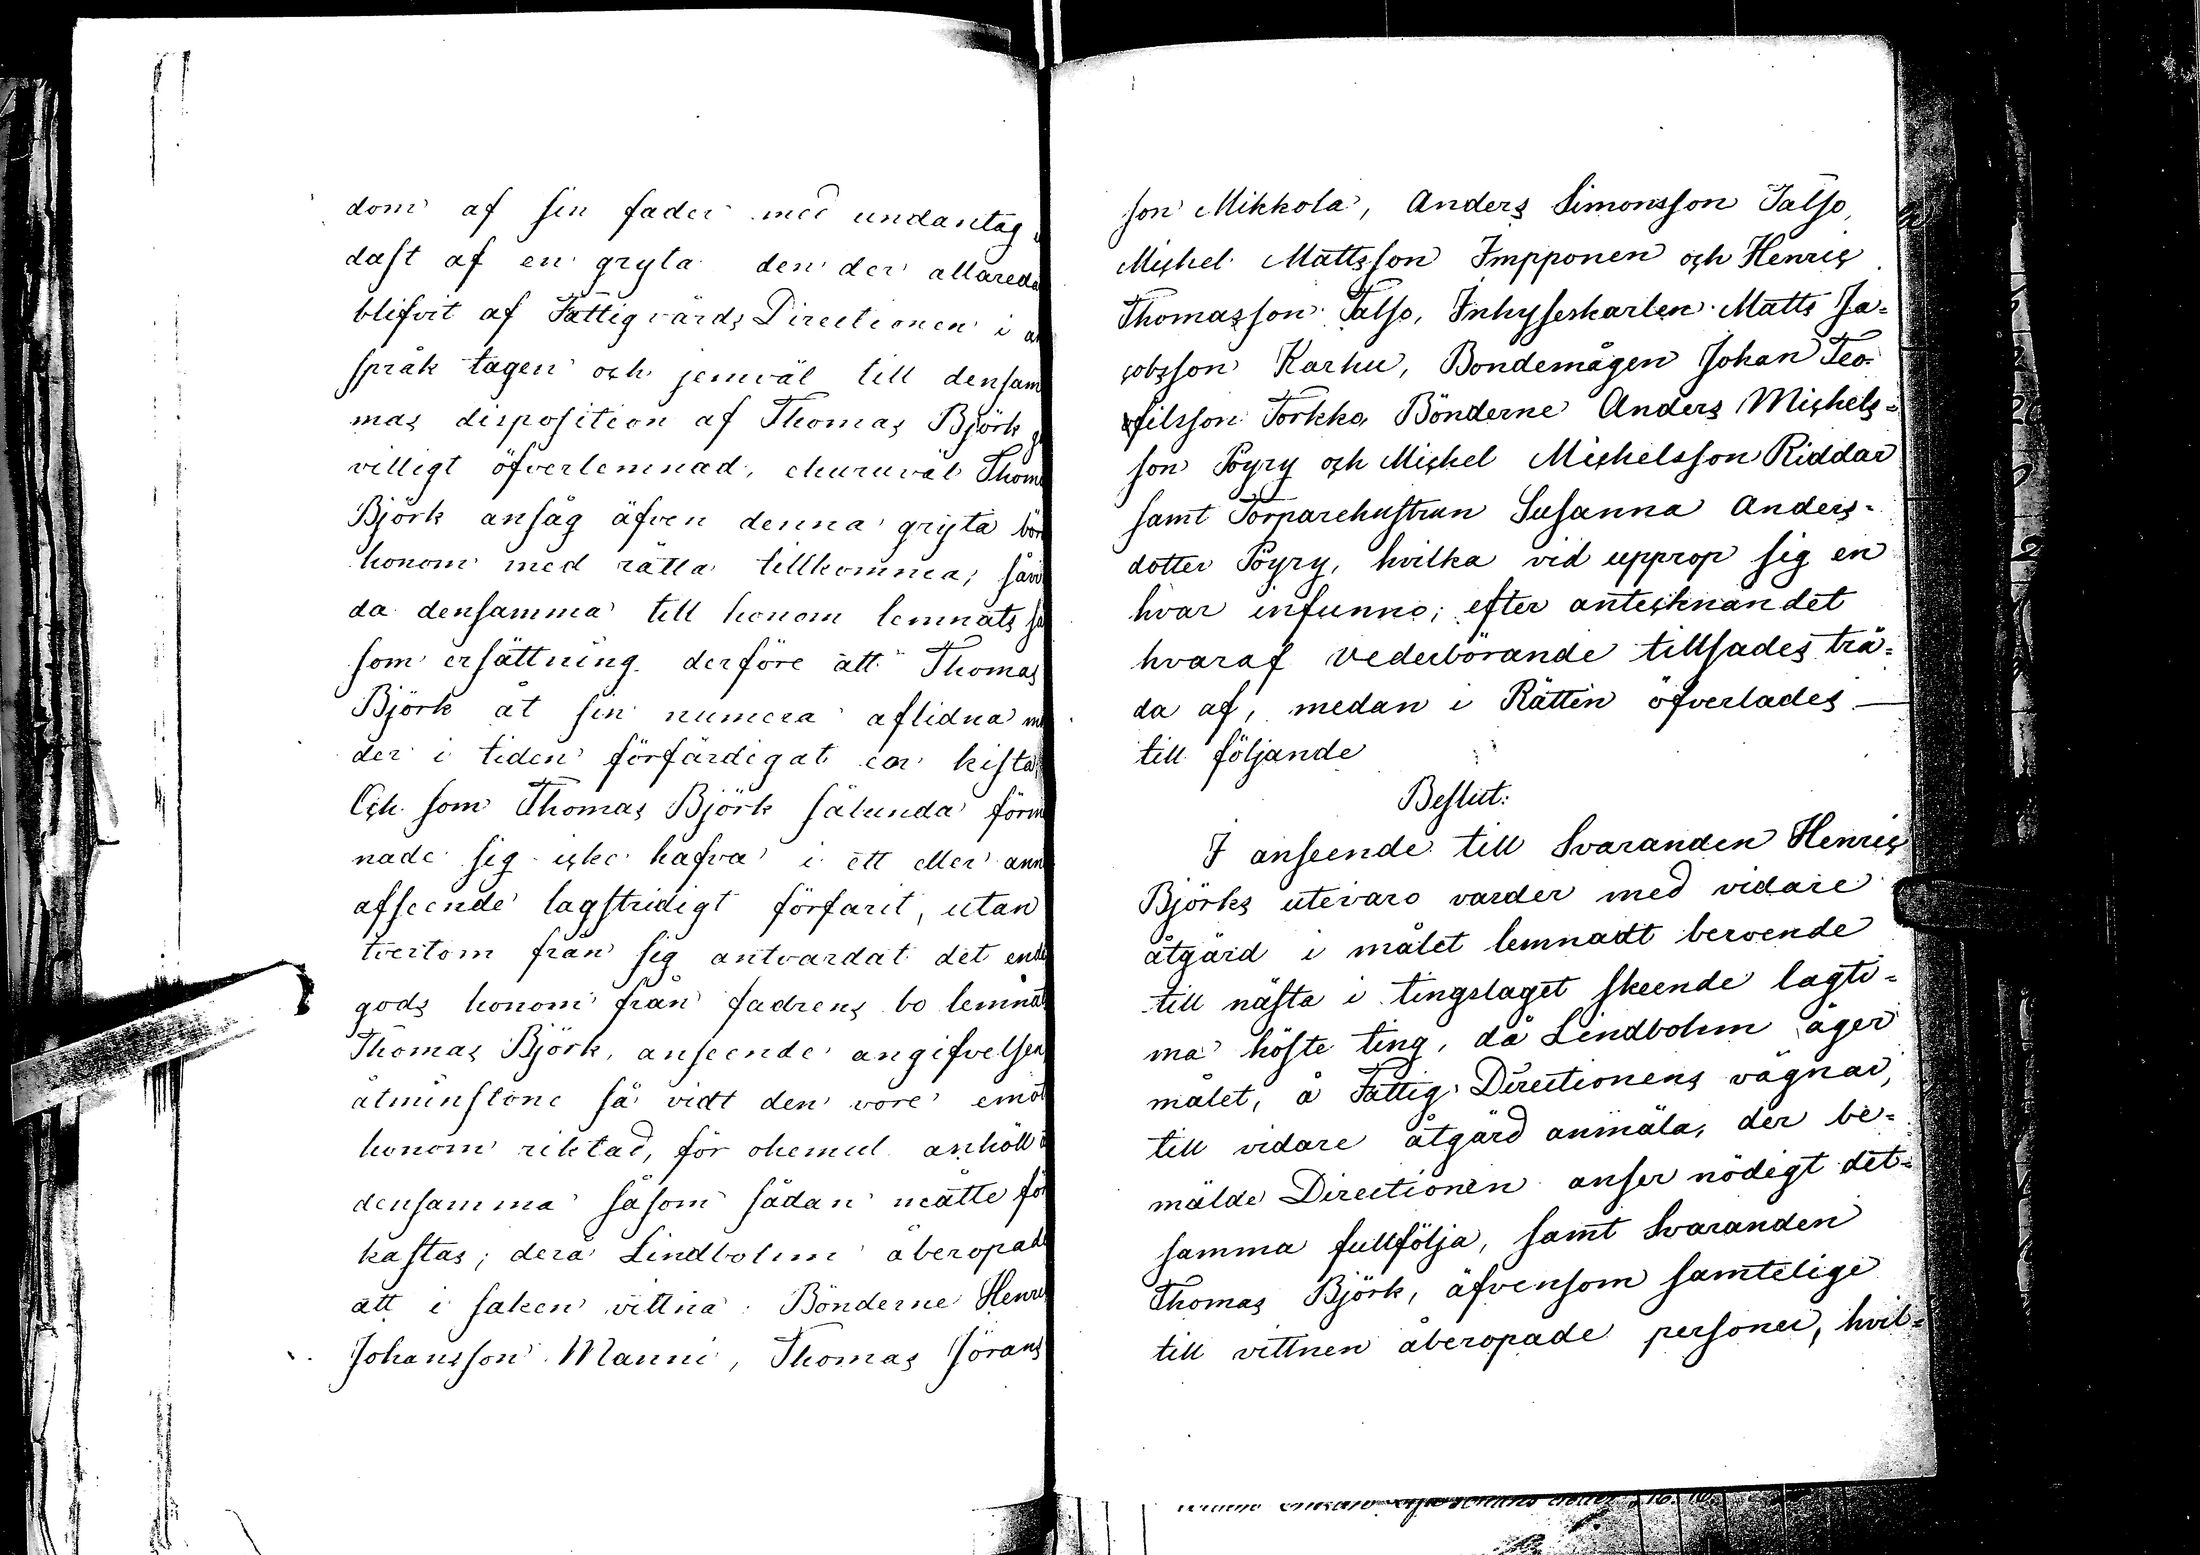 dom af sin fader med undantag
dast af en gryta den der allareda
blifvit af Fattigvårds Directionen i an
språk tagen och jemväl till densam
mas disposition af Thomas Björk
villigt öfverlemnad, churuväl Thom
Björk ansåg äfven denna gryta bör
honom med rätta tillkomma, såvi
da densamma till honom lemnats så
som ersättning derföre att Thomas
Björk åt sin numera aflidna mo
der i tiden förfärdigat en kista
Och som Thomas Björk sålunda förme
nade sig icke hafva i ett eller ann
afseende lagstridigt förfarit, utan
tvertom från sig antvardat det enda
gods honom från fadrens bo lemnat
Thomas Björk, anseende angifvelsen
åtminstone så vidt den vore emot
honom riktad, för ohemul anhöll
densamma såsom sådan måtte för
kastas; derå Lindbohm åberopade
att i saken vittna: Bönderne Henric
Johansson Manni, Thomas Jörans
son Mikkola, Anders Simonsson Talso,
Michel Mattsson Impponen och Henric
Thomasson Talso, Inhyseskarlen Matts Ja=
cobsson Karhu, Bondemågen Johan Teo=
filsson Torkko, Bönderne Anders Michels=
son Pöyry och Michel Michelsson Riddar
samt Torparehustrun Susanna Anders=
dotter Pöyry, hvilka vid upprop sig en
hvar infunno; efter antecknandet
hvaraf vederbörande tillsades trä=
da af, medan i Rätten öfverlades —
till följande
Beslut:
I anseende till Svaranden Henric
Björks utevaro varder med vidare
åtgärd i målet lemnadt beroende
till nästa i tingslaget skeende lagti=
ma höste ting, då Lindbohm äger
målet, å Fattig Directionens vägnar,
till vidare åtgärd anmäla, der be=
mälde Directionen anser nödigt det=
samma fullfölja, samt Svaranden
Thomas Björk, äfvensom samtelige
till vittnen åberopade personer, hvil=